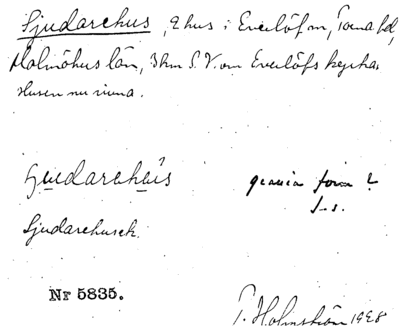 Sjudarehus, 2 hus i Everlöf sn, Torna hd,
Malmöhus län, 3 km S.V. om Everlöfs kyrka.
Husen nu rivna.
Sjudarehus
gamla form?
Sjudarehusek.
Nr 5835.
T. Holmström 1928